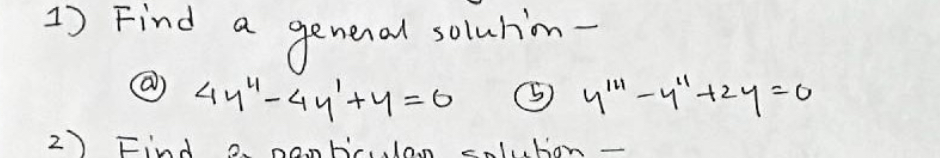 1) Find a general solution –
ⓐ 4y'' - 4y' + y = 0 ⓑ y''' - y'' + 2y = 0
2) Find a particular solution –